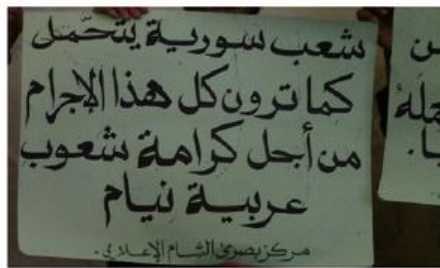 شعب سورية يتحمّل
كما ترون كل هذا الإجرام
من أجل كرامة شعوب
عربية نيام
مركز بصرى الشام الإعلامي.
ن
هلهُ
ا.